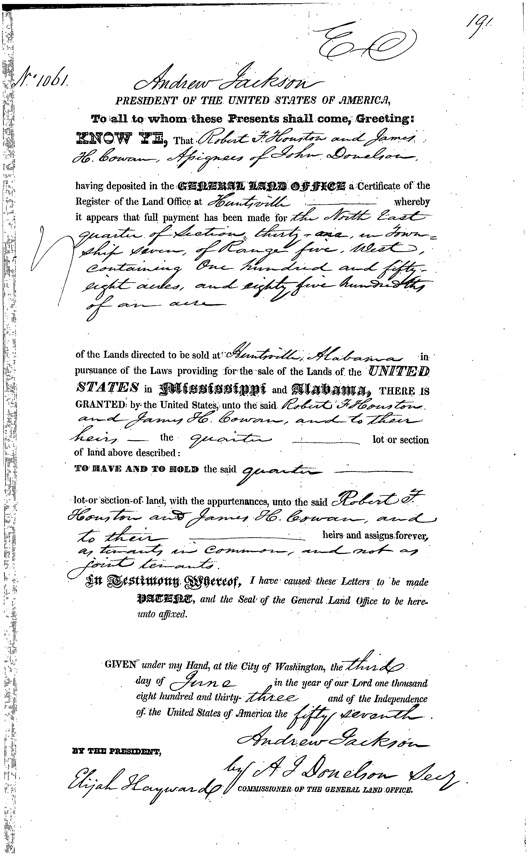 191
E O
No. 1061.
Andrew Jackson
PRESIDENT OF THE UNITED STATES OF AMERICA,
To all to whom these Presents shall come, Greeting:
KNOW YE, That Robert F. Houston and James
H. Cowan, Assignees of John Donelson,
having deposited in the GENERAL LAND OFFICE a Certificate of the
Register of the Land Office at Huntsville whereby
it appears that full payment has been made for the North East
quarter of Section, thirty-one, in Town=
ship seven, of Range five, West,
containing One hundred and fifty-
eight acres, and eighty five hundredths
of an acre
of the Lands directed to be sold at Huntsville, Alabama in
pursuance of the Laws providing for the sale of the Lands of the UNITED
STATES in Mississippi and Alabama, THERE IS
GRANTED by the United States, unto the said Robert F. Houston
and James H. Cowan, and to their
heirs — the quarter lot or section
of land above described:
TO HAVE AND TO HOLD the said quarter
lot or section of land, with the appurtenances, unto the said Robert F.
Houston and James H. Cowan, and
to their heirs and assigns forever,
as tenants in common, and not as
joint tenants.
In Testimony Whereof, I have caused these Letters to be made
PATENT, and the Seal of the General Land Office to be here-
unto affixed.
GIVEN under my Hand, at the City of Washington, the third
day of June in the year of our Lord one thousand
eight hundred and thirty-three and of the Independence
of the United States of America the fifty seventh.
Andrew Jackson
BY THE PRESIDENT,
by A J Donelson Secy.
Elijah Hayward COMMISSIONER OF THE GENERAL LAND OFFICE.